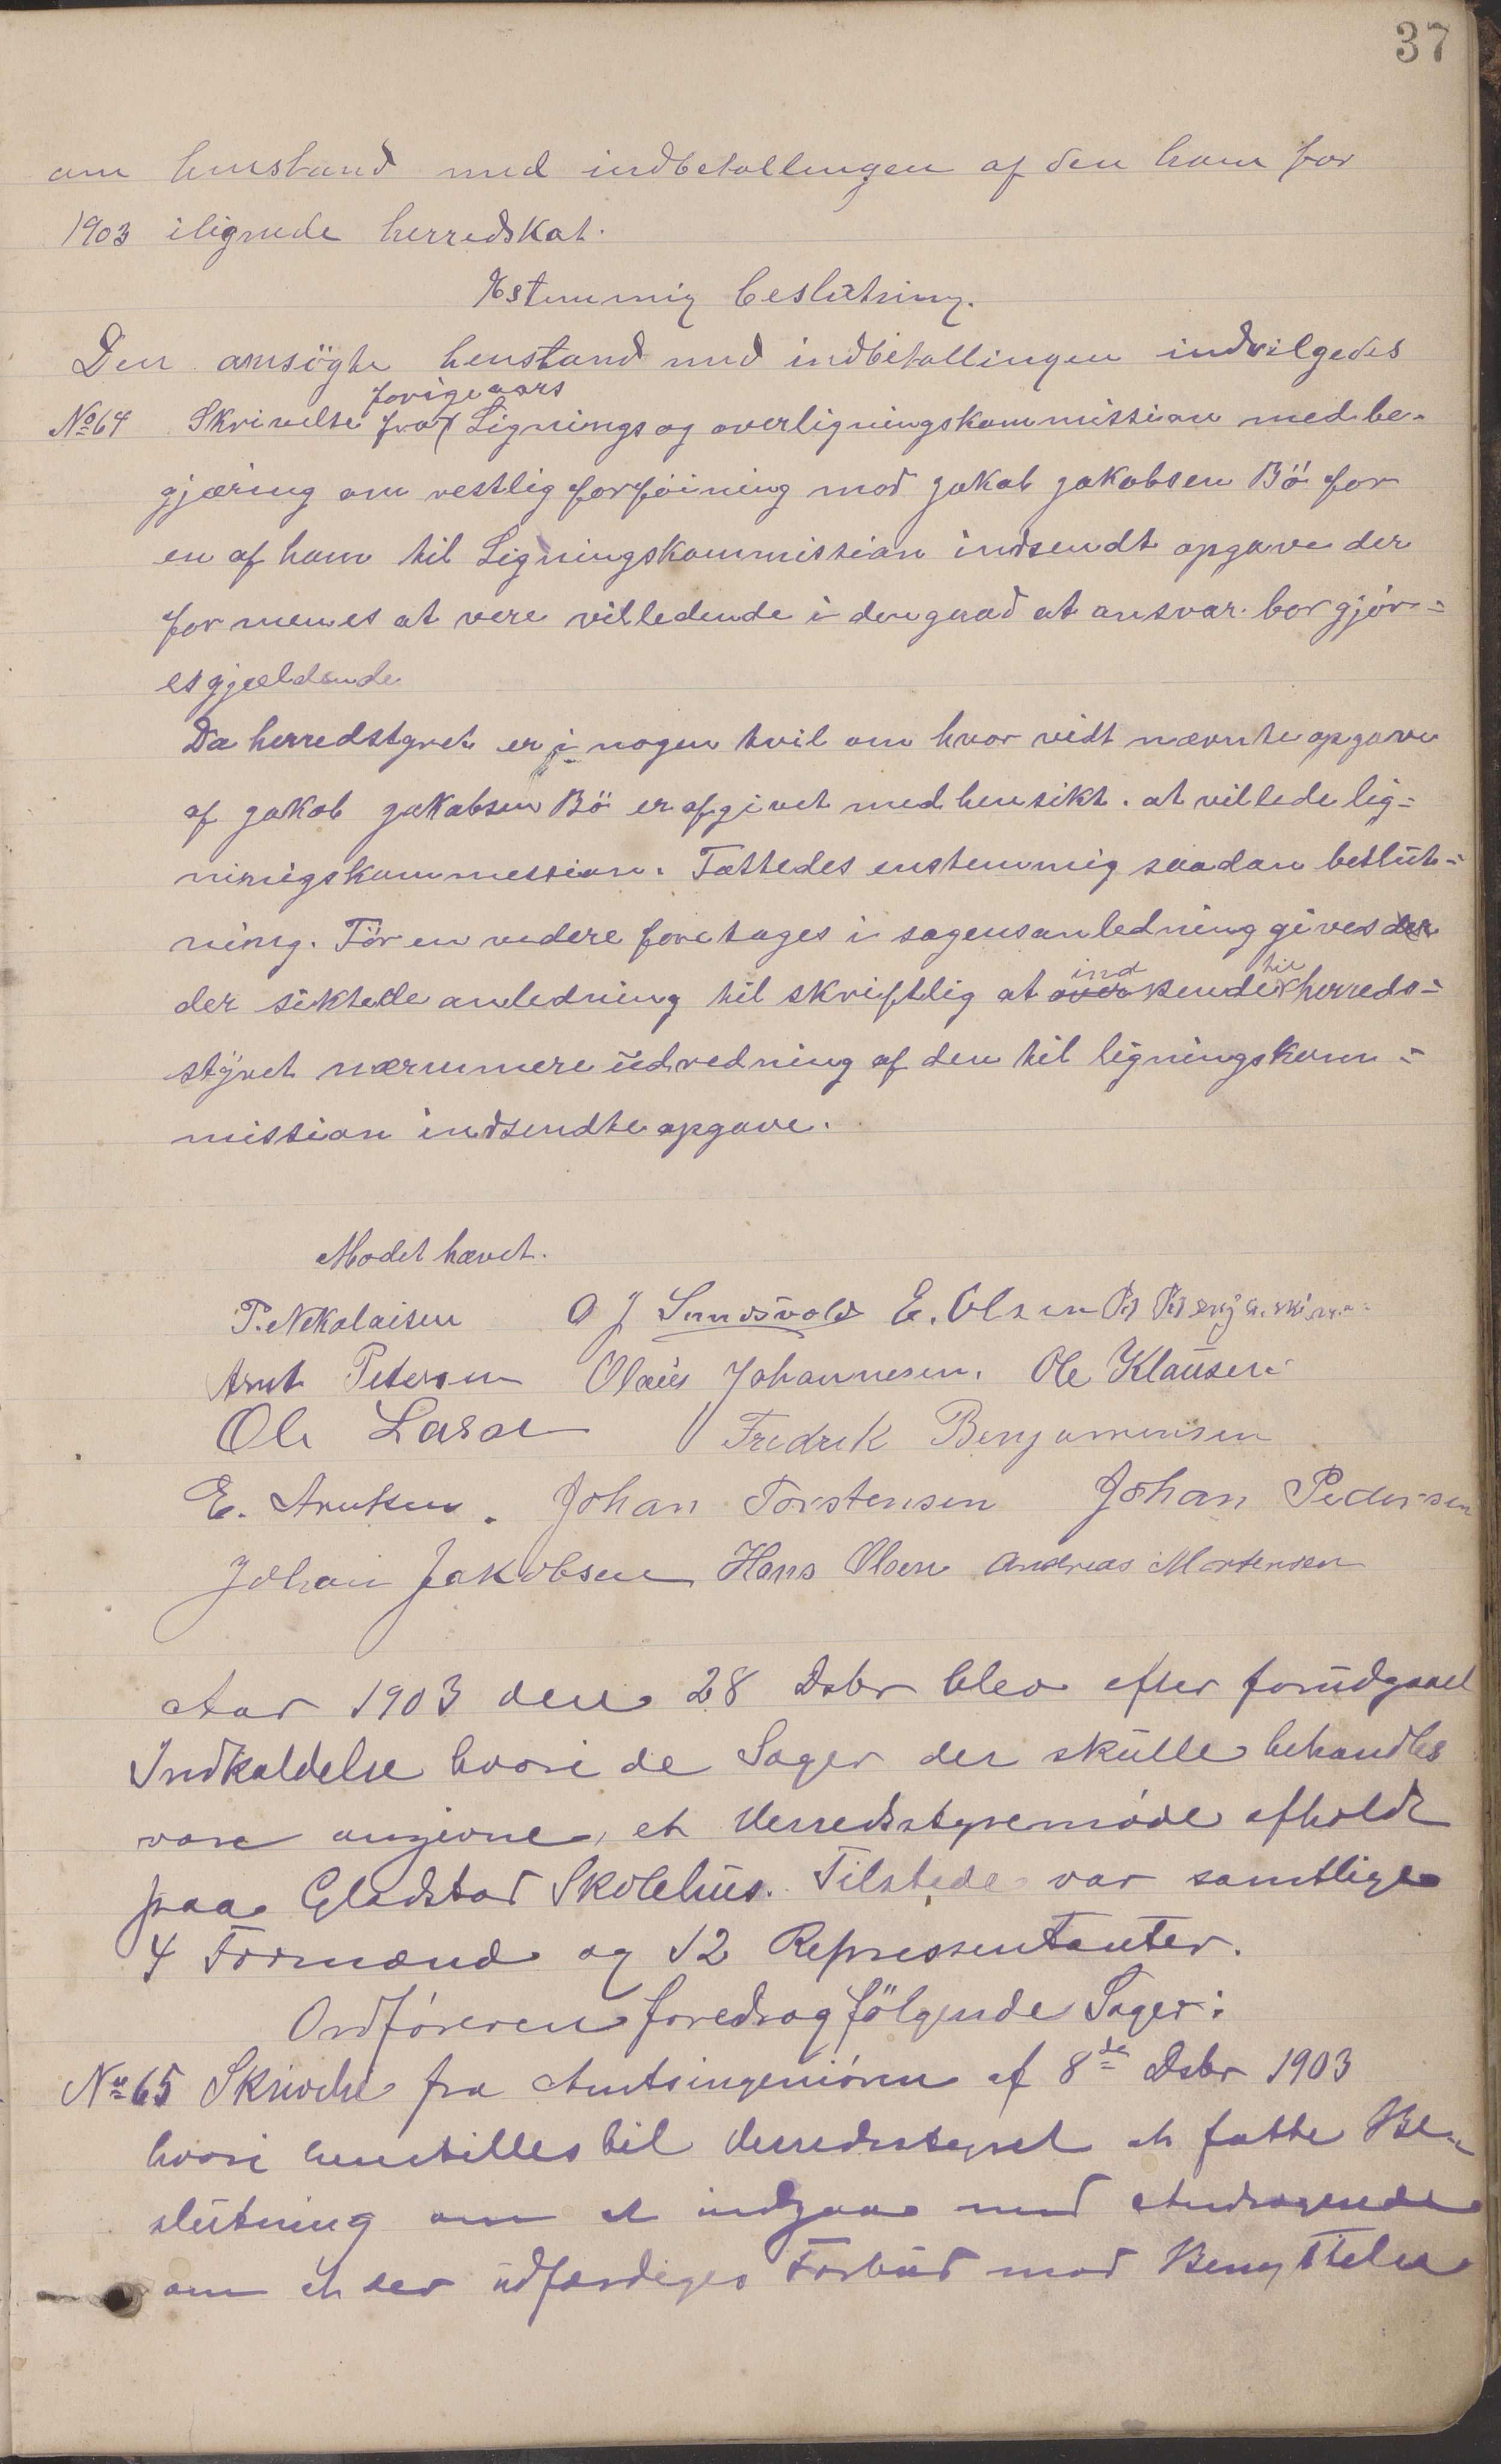 37
om henstand med indbetallingen af den ham for
1903 ilignede herredskat.
Estemmig beslutning.
Den ansögte henstand med indbetallingen indvilgedes
forige aars
No 64 Skrivelse fra Lignings og overligningskommission med be-
gjæring om restlig forföining mod jakob jakobsen Bö for
en af ham til Ligningskommission indsendt opgave der
formenes at vere villedende i den grad at ansvar bor gjör=
es gjældende
Da herredstyret er i nogen tvil om hvor vidt nævnte opgave
af jakob jakobsen Bö er afgivet med hensikt at villede lig=
ningskommession. Fattedes enstemmig saadan beslut=
ning. För en videre foretages i sagens anledning gives der
ind til
der siktede anledning til skriftlig at over sende herreds=
styret nærmmere udredning af den til ligningskom=
mission indsendte opgave.
Modet hævet.
P. Nekolaisen O J Sundsvold E. Olsen
Arnt Petersen Olaus Johannesen. Ole Klausen
Ole Larse Fredrek Benjamensen
E. Arntsen. Johan Torstensen Johan Pedersen
Johan Jakobsen Hans Olsen Andreas Mortensen
Aar 1903 den 28 Dsbr blev efter forudgaael
Indkaldelse hvori de Sager der skulle behandles
vare angivne, et Herredsstyremöde afholdt
paa Gladstad Skolehus. Tilstede var samtlige
4 Formænd og 12 Repressentanter.
Ordföreren foredrog fölgende Sager:
No 65 Skrivelse fra Amtsingeniören af 8de Dsbr 1903
hvori henstilles til Herredsstyret at fatte Be-
slutning om at indgaa med Andragende
om at der udfærdiges Forbud mod Benyttelse